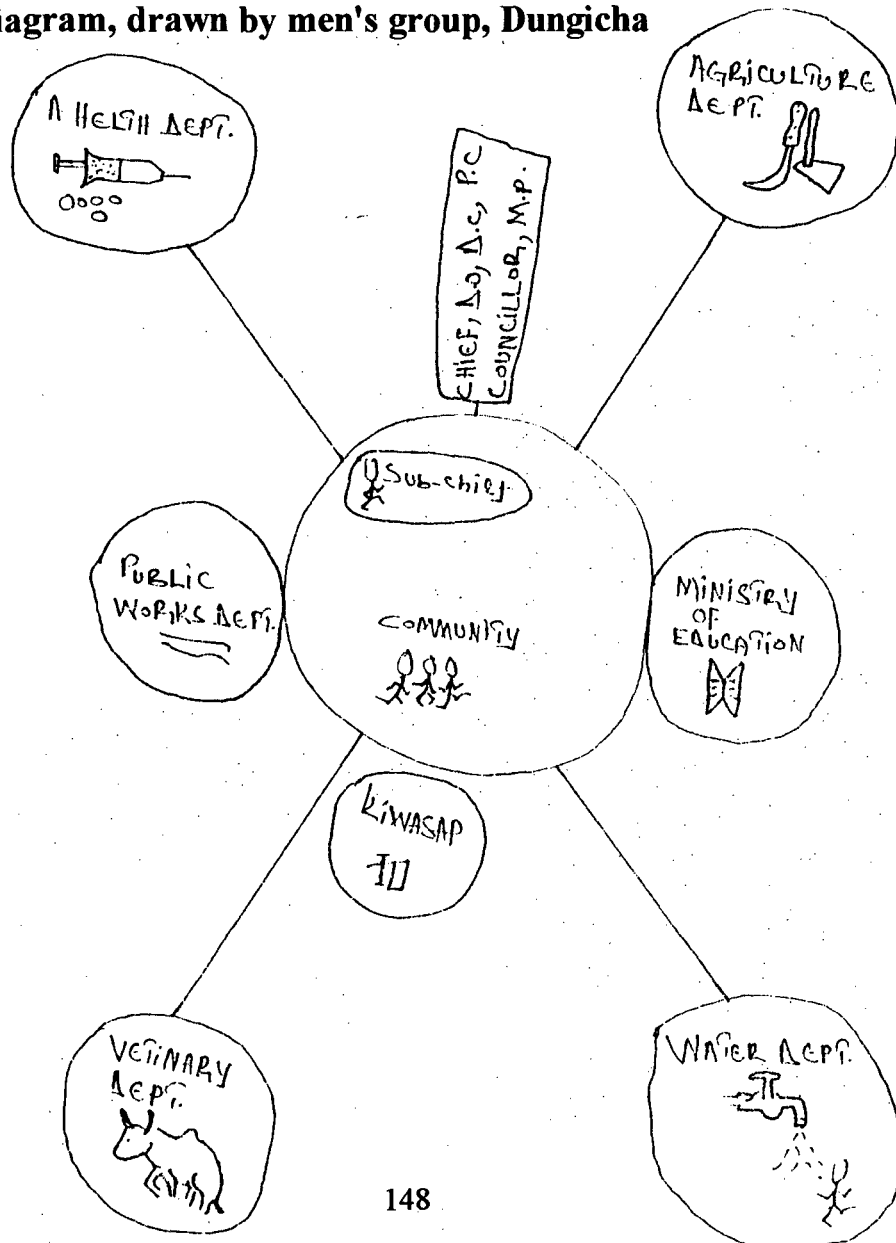 iagram, drawn by men's group, Dungicha
A HELTH DEPT.
AGRICULTURE
DEPT.
CHIEF, D.O, D.C, P.C
COUNCILLOR, M.P.
Sub-chief
PUBLIC
WORKS DEPT.
COMMUNITY
MINISTRY
OF
EDUCATION
KIWASAP
VETINARY
DEPT.
WATER DEPT.
148